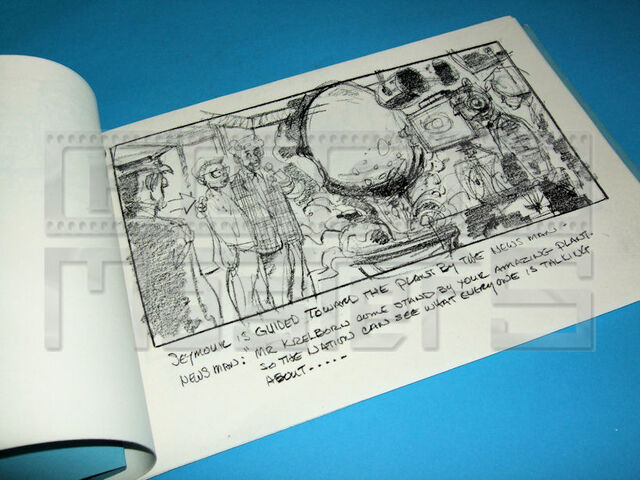 SEYMOUR IS GUIDED TOWARD THE PLANT BY THE NEWS MAN
NEWS MAN: "MR KRELBORN COME STAND BY YOUR AMAZING PLANT-
SO THE NATION CAN SEE WHAT EVERYONE IS TALKING
ABOUT-----